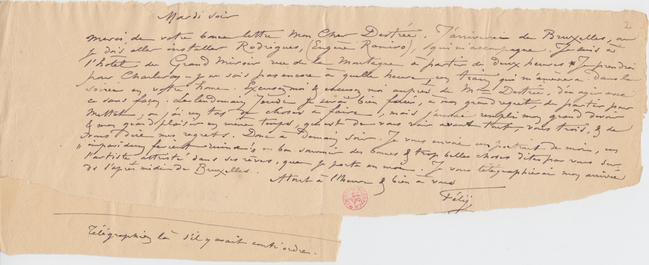 Mardi soir
2
Merci de votre bonne lettre mon Cher Destrée. J'arriverai de Bruxelles, où
je dois aller installer Rodrigues, (Eugène Ramiro), qui m'accompagne. Je suis à
l'hôtel du Grand Miroir rue de la Montagne à partir de deux heures & Je prendrai
par Charleroy – je ne sais pas encore à quelle heure, un train qui m'amènera dans la
soirée en votre home. Excusez moi & excusez moi auprès de Mme Destrée, d'en agir avec
ce sans façon. Le lendemain Jeudi je serai bien forcé, à mon grand regret, de partir pour
Mettet, où j'ai un tas de choses à faire, mais j'aurai rempli mon grand devoir
& mon grand plaisir en même temps, qui est de vous voir avant tout, vous trois, & de
vous dire mes regrets. Donc à Demain soir. Je vous envoie un portrait de moi, en
souvenir des bonnes & trop belles choses dites par vous sur
l'artiste attristé dans ses rêves, que je porte en moi. Je vous télégraphierai mon arrivée
de l'après midi de Bruxelles.
à l'heure & bien à vous
Fély
Télégraphiez là s'il y avait contr'ordre.